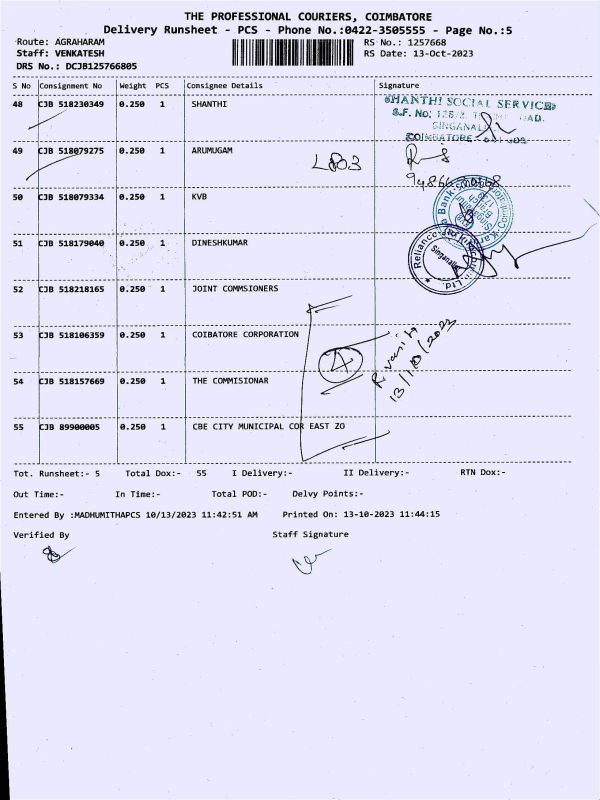 THE PROFESSIONAL COURIERS, COIMBATORE
Delivery Runsheet - PCS - Phone No.:0422-3505555 - Page No.:5
Route: AGRAHARAM RS No.: 1257668
Staff: VENKATESH RS Date: 13-Oct-2023
DRS No.: DCJB125766805
S No Consignment No Weight PCS Consignee Details Signature
48 CJB 518230349 0.250 1 SHANTHI
SHANTHI SOCIAL SERVICES
S.F. No:
SINGANALLUR
COIMBATORE
49 CJB 518079275 0.250 1 ARUMUGAM
50 CJB 518079334 0.250 1 KVB
51 CJB 518179040 0.250 1 DINESHKUMAR
Reliance
Singanallur
Ltd.
52 CJB 518218165 0.250 1 JOINT COMMSIONERS
53 CJB 518106359 0.250 1 COIBATORE CORPORATION
4
13/10/2023
54 CJB 518157669 0.250 1 THE COMMISIONAR
55 CJB 89900005 0.250 1 CBE CITY MUNICIPAL COR EAST ZO
Tot. Runsheet:- 5 Total Dox:- 55 I Delivery:- II Delivery:- RTN Dox:-
Out Time:- In Time:- Total POD:- Delvy Points:-
Entered By :MADHUMITHAPCS 10/13/2023 11:42:51 AM Printed On: 13-10-2023 11:44:15
Verified By Staff Signature